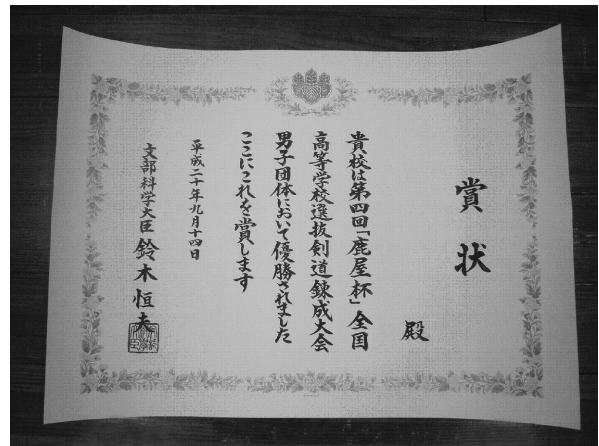 賞状
殿
貴校は第四回「鹿屋杯」全国
高等学校選抜剣道錬成大会
男子団体において優勝されました
ここにこれを賞します
平成二十年九月十四日
文部科学大臣 鈴木恒夫